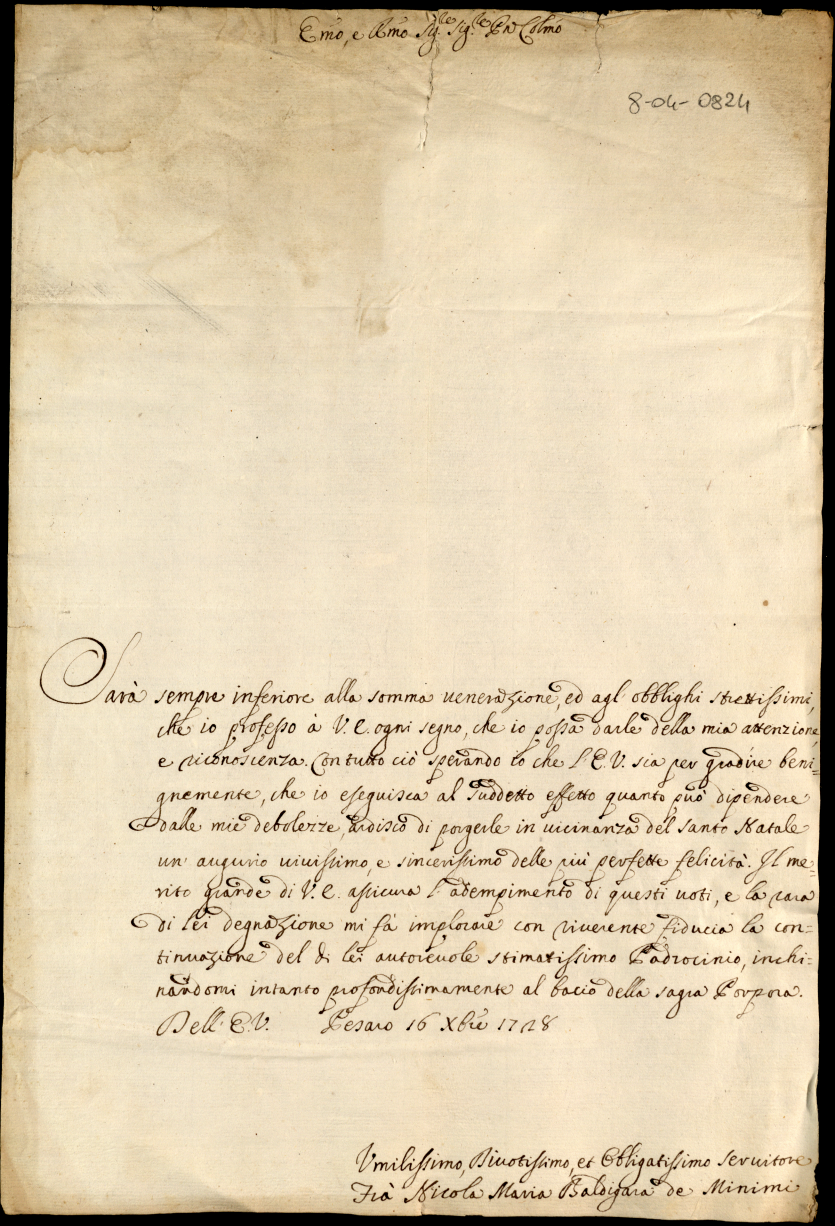 Emo, e Rmo Sig.re Sig.re Pn Colmo
8-04-0824
Sarà sempre inferiore alla somma venerazione, ed agl' obblighi strettissimi,
che io professo à V. E. ogni segno, che io possa darle della mia attenzione,
e riconoscenza. Con tutto ciò sperando io che l'E.V. sia per gradire beni=
gnemente, che io eseguisca al suddetto effetto quanto può dipendere
dalle mie debolezze, ardisco di porgerle in vicinanza del Santo Natale
un' augurio vivissimo, e sincerissimo delle più perfette felicità. Il me=
rito grande di V. E. assicura l'adempimento di questi voti, e la rara
di lei degnazione mi fà implorare con riverente fiducia la con=
tinuazione del di lei autorevole stimatissimo Padrocinio, inchi=
nandomi intanto profondissimamente al bacio della sagra Porpora.
Dell' E.V. Pesaro 16 Xbre 1728
Vmilissimo, Divotissimo, et Obbligatissimo servitore
Frà Nicola Maria Baldigara de Minimi